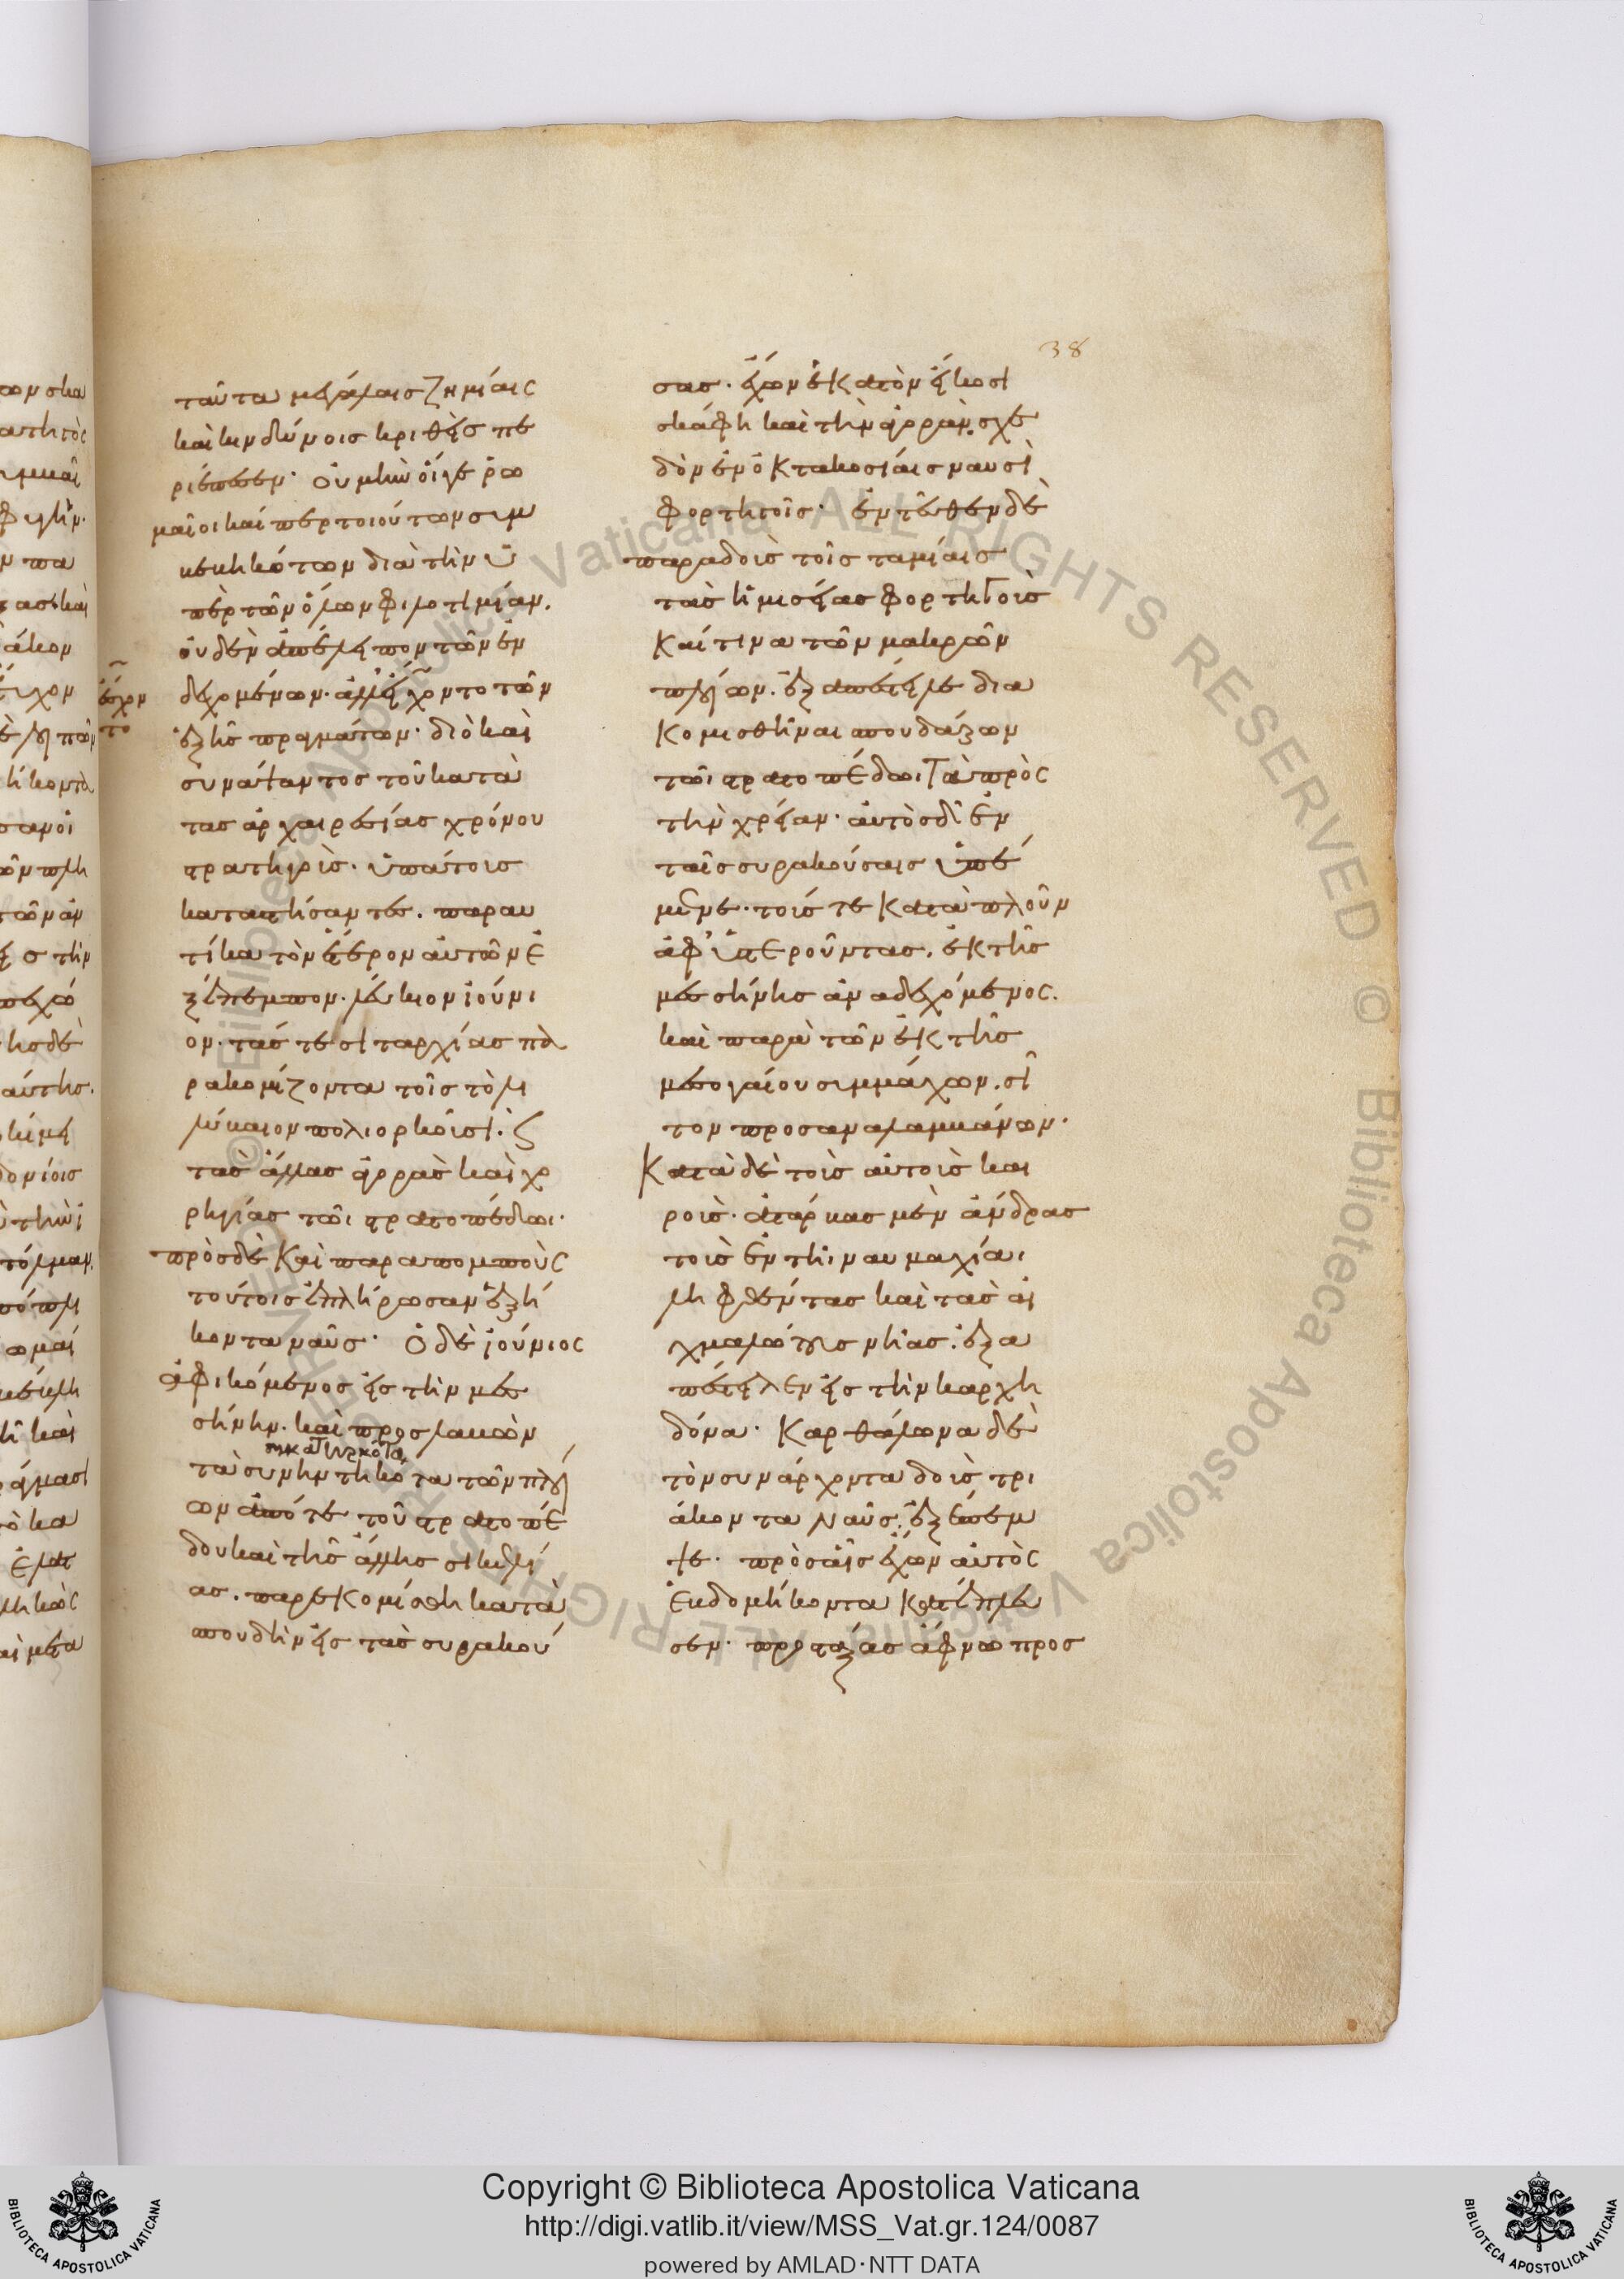 38
ταῦτα μεγάλαις ζημίαις
καὶ κινδύνοις κριθεὶς πε
ριέπεσεν· οὐ μὴν οἵγε ῥω
μαῖοι καίπερ τοιούτων συμ
βεβηκότων διὰ τὴν ὑ
πὲρ τῶν ὅλων φιλοτιμίαν.
οὐδὲν ἀπέλειπον τῶν ἐν
δεχομένων. ἀλλ' εἴχοντο τῶν
εἴχον
το
ἑξῆς πραγμάτων· διὸ καὶ
συνάψαντος τοῦ κατὰ
τὰς ἀρχαιρεσίας χρόνου
στρατηγοὺς. ὑπάτους
καταστήσαντες. παραυ
τίκα τὸν ἕτερον αὐτῶν ἐ
ξέπεμπον. λεύκιον ἰούνι
ον. τάς τε σιταρχίας πα
ρακομίζοντα τοῖς τὸ λι
λύβαιον πολιορκοῦσι. καὶ
τὰς ἄλλας ἀγορὰς καὶ χο
ρηγίας τῶι στρατοπέδωι.
πρὸς δὲ καὶ παραπομποὺς
τούτοις ἐπλήρωσαν ἑξή
κοντα ναῦς· ὁ δὲ ἰούνιος
ἀφικόμενος εἰς τὴν μεσ
σήνην. καὶ προσλαβὼν
συνκατηγκότα
τὰ συνηντηκότα τῶν πλοί
ων ἀπό τε τοῦ στρατοπέ
δου καὶ τῆς ἄλλης σικελί
ας. παρεκομίσθη κατὰ
σπουδὴν εἰς τὰς συρακού
σας. ἔχων ἑκατὸν εἴκοσι
σκάφη καὶ τὴν ἀγορὰν. σχε
δὸν ἐν ὀκτακοσίαις ναυσὶ
φορτηγοῖς· ἐντεῦθεν δὲ
παραδοὺς τοῖς ταμίαις
τὰς ἡμισείας φορτηγοὺς
καί τινα τῶν μακρῶν
πλοίων. ἐξαπέστειλε δια
κομισθῆναι σπουδάζων
τῶι στρατοπέδωι τὰ πρὸς
τὴν χρείαν. αὐτὸς δ' ἐν
ταῖς συρακούσαις ὑπέ
μεινε. τούς τε κατὰ πλοῦν
ἀφυστεροῦντας. ἐκ τῆς
μεσσήνης ἀναδεχόμενος.
καὶ παρὰ τῶν ἐκ τῆς
μεσογαίου συμμάχων. σῖ
τον προσαναλαμβάνων.
κατὰ δὲ τοὺς αὐτοὺς και
ροὺς. ἀτάρβας μὲν ἄνδρας
τοὺς ἐν τῆι ναυμαχίαι
ληφθέντας καὶ τὰς αἰ
χμαλώτους νῆας. ἐξα
πέστειλεν εἰς τὴν καρχη
δόνα· καρθάλωνα δὲ
τὸν συνάρχοντα δοὺς τρι
άκοντα ναῦς. ἐξέπεμ
ψε. πρὸς αἷς ἔχων αὐτὸς
ἑβδομήκοντα κατέπλευ
σεν. προστάξας ἄφνω προσ